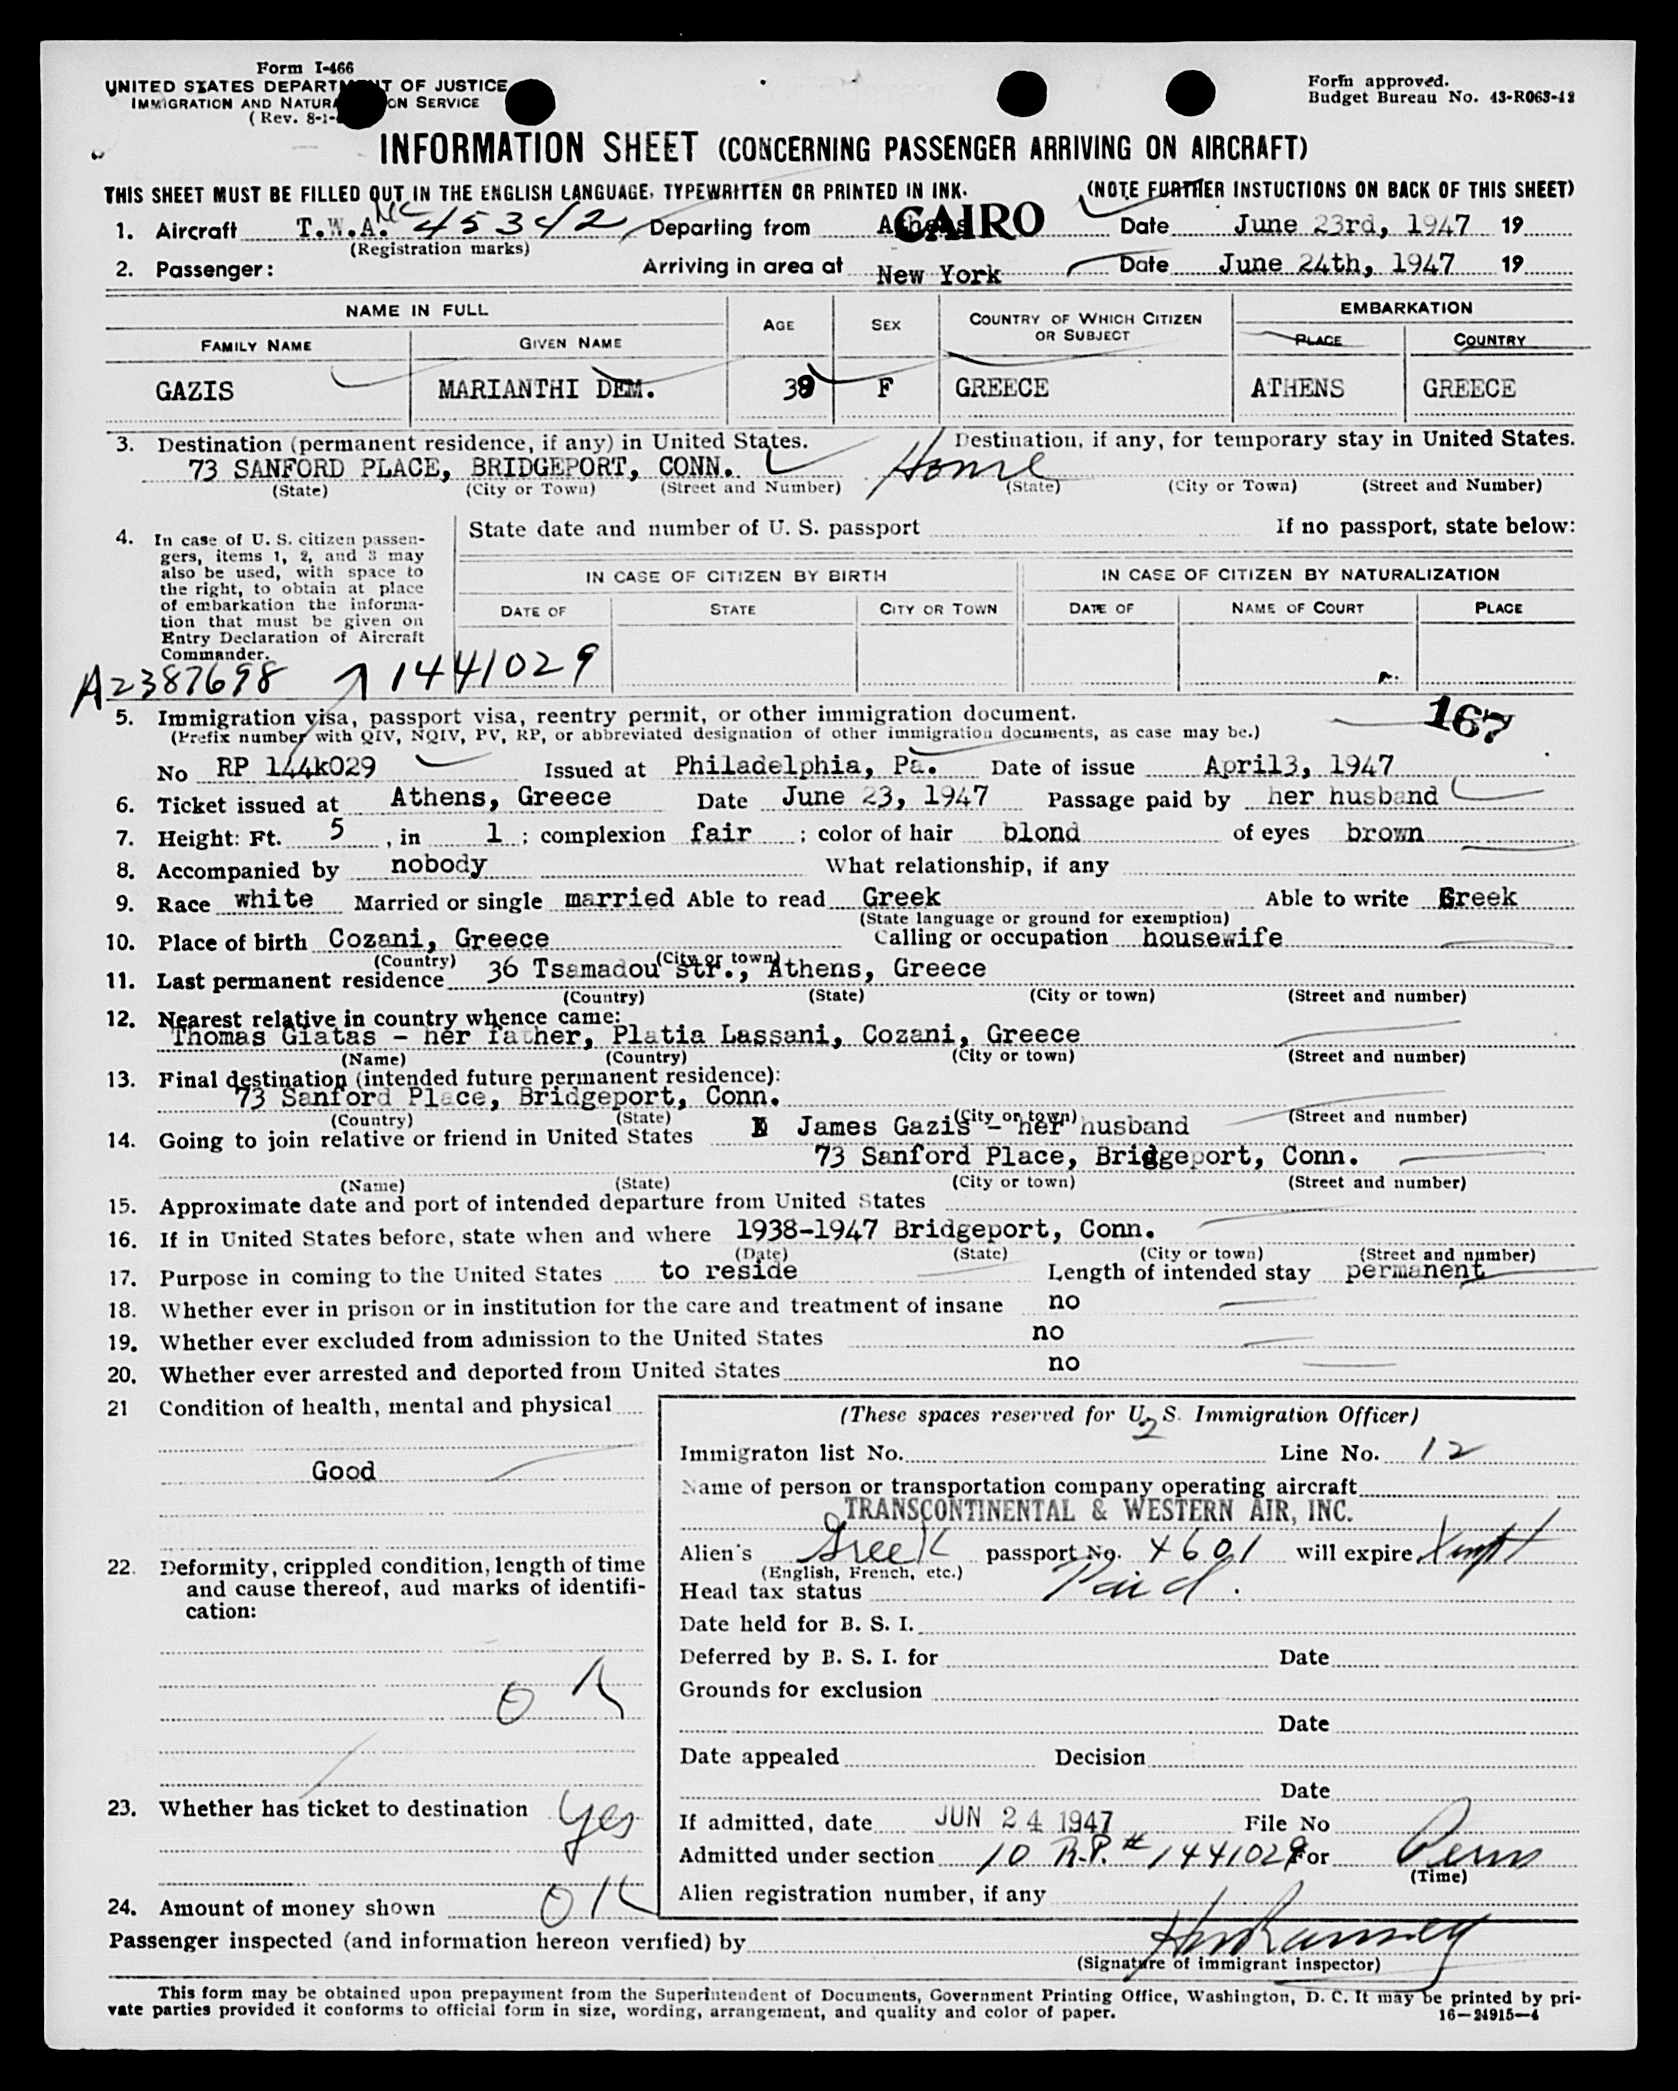 Form I-466
UNITED STATES DEPARTMENT OF JUSTICE
IMMIGRATION AND NATURALIZATION SERVICE
(Rev. 8-1-
Form approved.
Budget Bureau No. 43-R063-42
INFORMATION SHEET (CONCERNING PASSENGER ARRIVING ON AIRCRAFT)
THIS SHEET MUST BE FILLED OUT IN THE ENGLISH LANGUAGE, TYPEWRITTEN OR PRINTED IN INK. (NOTE FURTHER INSTUCTIONS ON BACK OF THIS SHEET)
1. Aircraft T.W.A. NC 45342 Departing from Athens CAIRO Date June 23rd, 1947 19
(Registration marks)
2. Passenger: Arriving in area at New York Date June 24th, 1947 19
NAME IN FULL AGE SEX COUNTRY OF WHICH CITIZEN OR SUBJECT EMBARKATION
FAMILY NAME GIVEN NAME PLACE COUNTRY
GAZIS MARIANTHI DEM. 39 F GREECE ATHENS GREECE
3. Destination (permanent residence, if any) in United States. Destination, if any, for temporary stay in United States.
73 SANFORD PLACE, BRIDGEPORT, CONN. Home
(State) (City or Town) (Street and Number) (State) (City or Town) (Street and Number)
4. In case of U. S. citizen passengers, items 1, 2, and 3 may also be used, with space to the right, to obtain at place of embarkation the information that must be given on Entry Declaration of Aircraft Commander.
State date and number of U. S. passport If no passport, state below:
IN CASE OF CITIZEN BY BIRTH IN CASE OF CITIZEN BY NATURALIZATION
DATE OF STATE CITY OR TOWN DATE OF NAME OF COURT PLACE
A2387698 1441029
5. Immigration visa, passport visa, reentry permit, or other immigration document. 167
(Prefix number with QIV, NQIV, PV, RP, or abbreviated designation of other immigration documents, as case may be.)
No RP 144k029 Issued at Philadelphia, Pa. Date of issue April3, 1947
6. Ticket issued at Athens, Greece Date June 23, 1947 Passage paid by her husband
7. Height: Ft. 5, in 1; complexion fair; color of hair blond of eyes brown
8. Accompanied by nobody What relationship, if any
9. Race white Married or single married Able to read Greek Able to write Greek
(State language or ground for exemption)
10. Place of birth Cozani, Greece Calling or occupation housewife
(Country) (City or town)
11. Last permanent residence 36 Tsamadou str., Athens, Greece
(Country) (State) (City or town) (Street and number)
12. Nearest relative in country whence came:
Thomas Giatas - her father, Platia Lassani, Cozani, Greece
(Name) (Country) (City or town) (Street and number)
13. Final destination (intended future permanent residence):
73 Sanford Place, Bridgeport, Conn.
(Country) (State) (City or town) (Street and number)
14. Going to join relative or friend in United States James Gazis - her husband
73 Sanford Place, Bridgeport, Conn.
(Name) (State) (City or town) (Street and number)
15. Approximate date and port of intended departure from United States
16. If in United States before, state when and where 1938-1947 Bridgeport, Conn.
(Date) (State) (City or town) (Street and number)
17. Purpose in coming to the United States to reside Length of intended stay permanent
18. Whether ever in prison or in institution for the care and treatment of insane no
19. Whether ever excluded from admission to the United States no
20. Whether ever arrested and deported from United States no
21 Condition of health, mental and physical
Good
22. Deformity, crippled condition, length of time and cause thereof, aud marks of identification:
OK
23. Whether has ticket to destination Yes
24. Amount of money shown OK
(These spaces reserved for U. S. Immigration Officer)
Immigraton list No. 2 Line No. 12
Name of person or transportation company operating aircraft
TRANSCONTINENTAL & WESTERN AIR, INC.
Alien's Greek passport No. 4601 will expire
(English, French, etc.)
Head tax status Paid.
Date held for B. S. I.
Deferred by B. S. I. for Date
Grounds for exclusion
Date
Date appealed Decision
Date
If admitted, date JUN 24 1947 File No
Admitted under section 10 R.P. # 1441029 For Perm
(Time)
Alien registration number, if any
Passenger inspected (and information hereon verified) by
(Signature of immigrant inspector)
This form may be obtained upon prepayment from the Superintendent of Documents, Government Printing Office, Washington, D. C. It may be printed by private parties provided it conforms to official form in size, wording, arrangement, and quality and color of paper.
16-24915-4